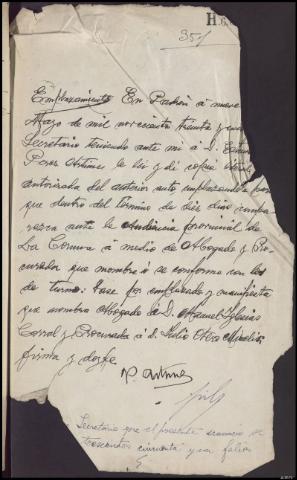 H.
351
Emplazamiento En Padrón á nueve
Mayo de mil novecientos treinta y
Secretario teniendo ante mi á D.
Pose Antunez le lei y dí copia literal
autorizada del anterior auto emplazandole por
que dentro del término de diez dias compa-
rezca ante la Audiencia provincial de
La Coruña á medio de Abogado y Pro-
curador que nombre ó se conforme con los
de turno: Hase por emplazado y manifiesta
que nombra Abogado de D. Manuel Iglesias
Corral y Procurador á D. Julio Otero Mirelis
firma y doyfe.
P. Antunez
Secretario que el presente sumario
trescientos cincuenta y un folios